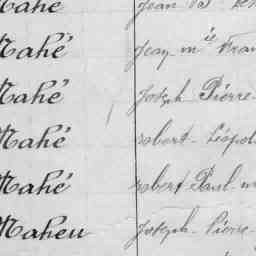 Mahé Jean B
Mahé Jean M ie Fran
Mahé Joseph Pierre
Mahé robert Léopol
Mahé robert Paul m
Maheu Joseph Pierre